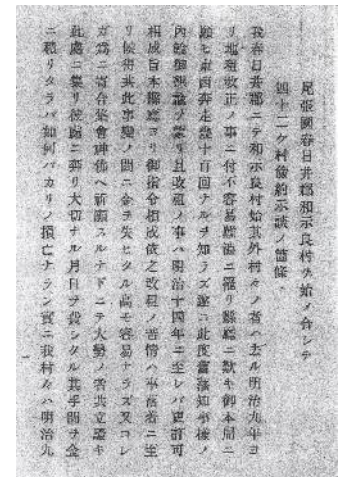 尾張國春日井郡和示良村ヲ始メ合シテ
四十二ケ村儉約示談ノ箇條
我春日井郡ニテ和示良村始其外村々ノ者ハ去ル明治九年ヨ
リ地租改正ノ事ニ付不容易難澁ニ罹リ縣廳ニ歎キ御本局ニ
願ヒ東西奔走幾十百回ナルヲ知ラズ遂ニ此度舊藩知事樣ノ
內諭御救助ヲ蒙リ且改租ノ事ハ明治十四年ニ至レバ更訂可
相成旨本縣廳ヨリ御指令相成依之改租ノ苦情ハ事落着ニ至
リ候得共此事變ノ間ニ金ヲ失ヒタル高モ容易ナラズ又コレ
ガ爲ニ寄合集會神佛ヘ祈願スルナドニテ大勢ノ者共立騷キ
此處ニ集リ彼處ニ奔リ大切ナル月日ヲ費シタル其手間ヲ金
ニ積リタラバ如何バカリノ損亡ナラン實ニ我村々ハ明治九